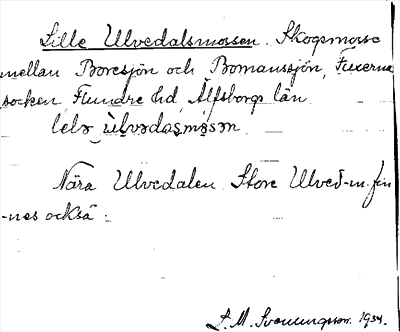 Lille Ulvedalsmossen. Skogsmosse
mellan Boresjön och Bomanssjön, Fuxerna
socken, Flundre hd, Älfsborgs län.
lelə ùlvədaşmɔsən.
Nära Ulvedalen. Store Ulved-m. fin
-nes också.
S. M. Svenungsson. 1934.